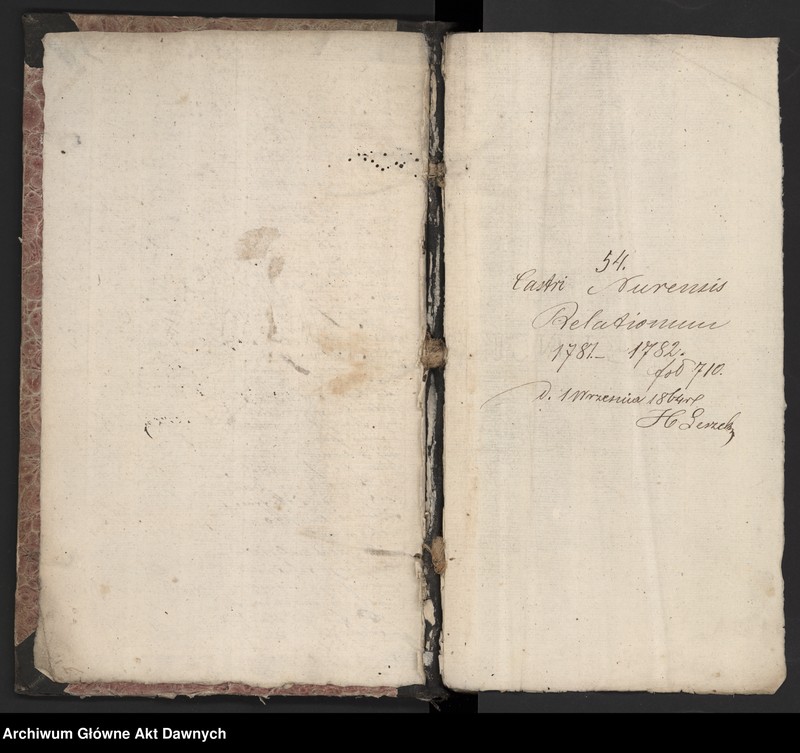 54.
Castri Nurensis
Relationum
1781 – 1782.
fol 710.
D. 1 Września 1864 r
H
Archiwum Główne Akt Dawnych